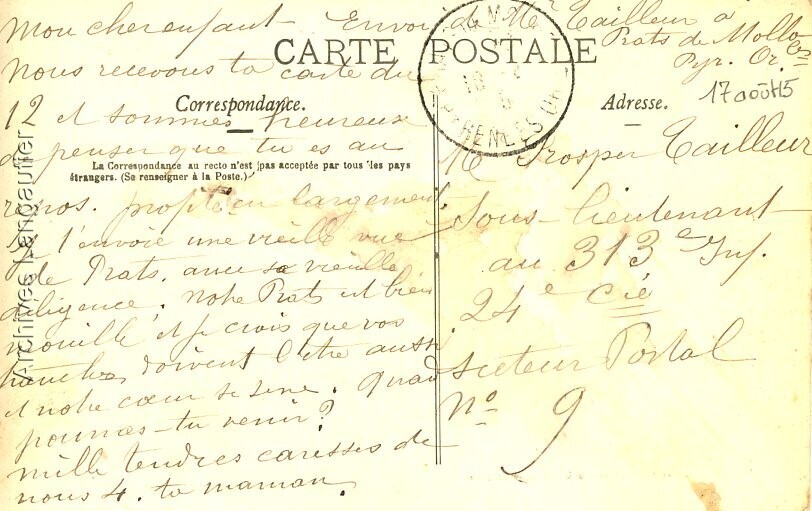 mon cher enfant
Envoi de Mr Tailleur a
Prats de Mollo
Pyr. Or.
CARTE POSTALE
nous recevons ta carte du
17 août 15
Correspondance.
12 et sommes heureux
de penser que tu es au
La Correspondance au recto n'est pas acceptée par tous les pays
étrangers. (Se renseigner à la Poste.)
repos. profite en largement
Je t'envoie une vieille vue
de Prats. avec sa vieille
diligence. Notre Prats est bien
mouillé et je crois que vos
tranchées doivent l'être aussi
et notre cœur se serre. Quand
pourras-tu venir?
mille tendres caresses de
nous 4. ta maman.
Adresse.
Mr Prosper Tailleur
Sous-lieutenant
au 313e Inf.
24e Cie
secteur Postal
No 9
PYRENEES OR
Archives Lapauline